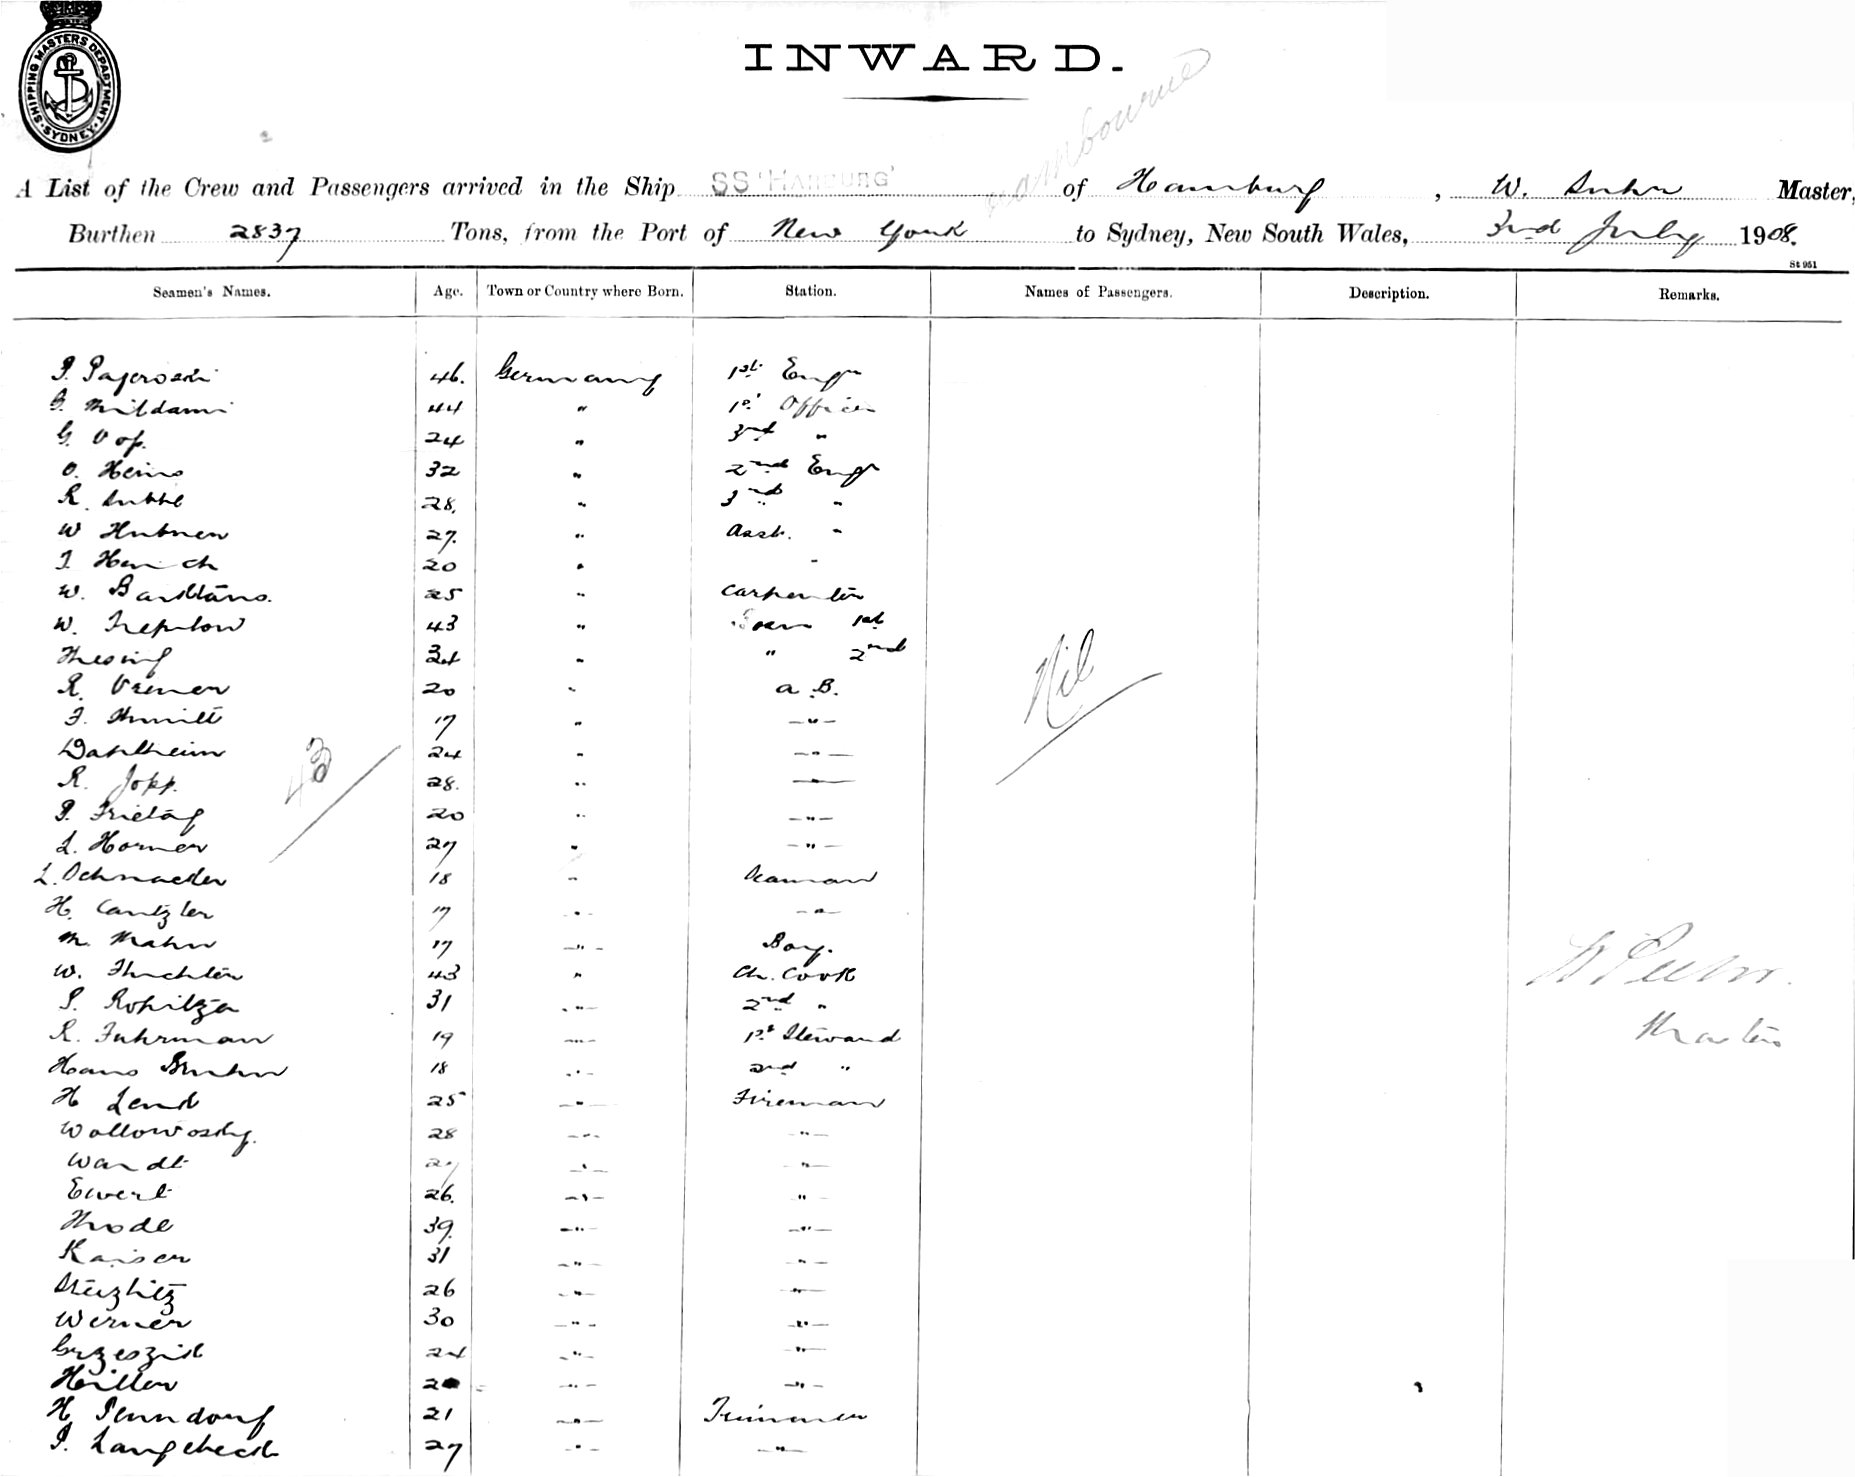 SHIPPING MASTERS DEPARTMENT · SYDNEY ·
INWARD.
A List of the Crew and Passengers arrived in the Ship SS 'HARBURG' of Hamburg, W. Master,
Burthen 2837 Tons, from the Port of New York to Sydney, New South Wales, 3rd July 1908.
St 951
Seamen's Names. Age. Town or Country where Born. Station. Names of Passengers. Description. Remarks.
P. 46. Germany 1st Engr
44 " 1st Officer
G. Vop. 24 " 3rd "
O. Heins 32 " 2nd Engr
R. 28. " 3rd "
W Hubner 27. " Asst. "
Henrich 20 " "
W. 25 " Carpenter
W. Trepntow 43 " 1st
Thesing 34 " " 2nd
R. 20 " a. B.
17 " — " —
Dahlheim 24 " — " —
R. Jopp. 28. " — " —
P. Frietag 20 " — " —
L. Horner 27 " — " —
L. Schnaeder 18 " Seaman
H. Cantzler 17 " — " —
M. Mahn 17 " Boy.
W. 43 " Ch. Cook
P. Rohitza 31 " 2nd "
R. Fuhrman 19 " 1st Steward
Hans Bruhn 18 " 2nd "
H Lenk 25 " Fireman
28 " "
Wandt 27 " "
Ewert 26. " "
Throde 39. " "
Kaiser 31 " "
26 " "
Werner 30 " "
24 " "
Hiller " "
H. Penndorf 21 " Trimmer
P. Langebeck 27 " "
43
Nil
Master